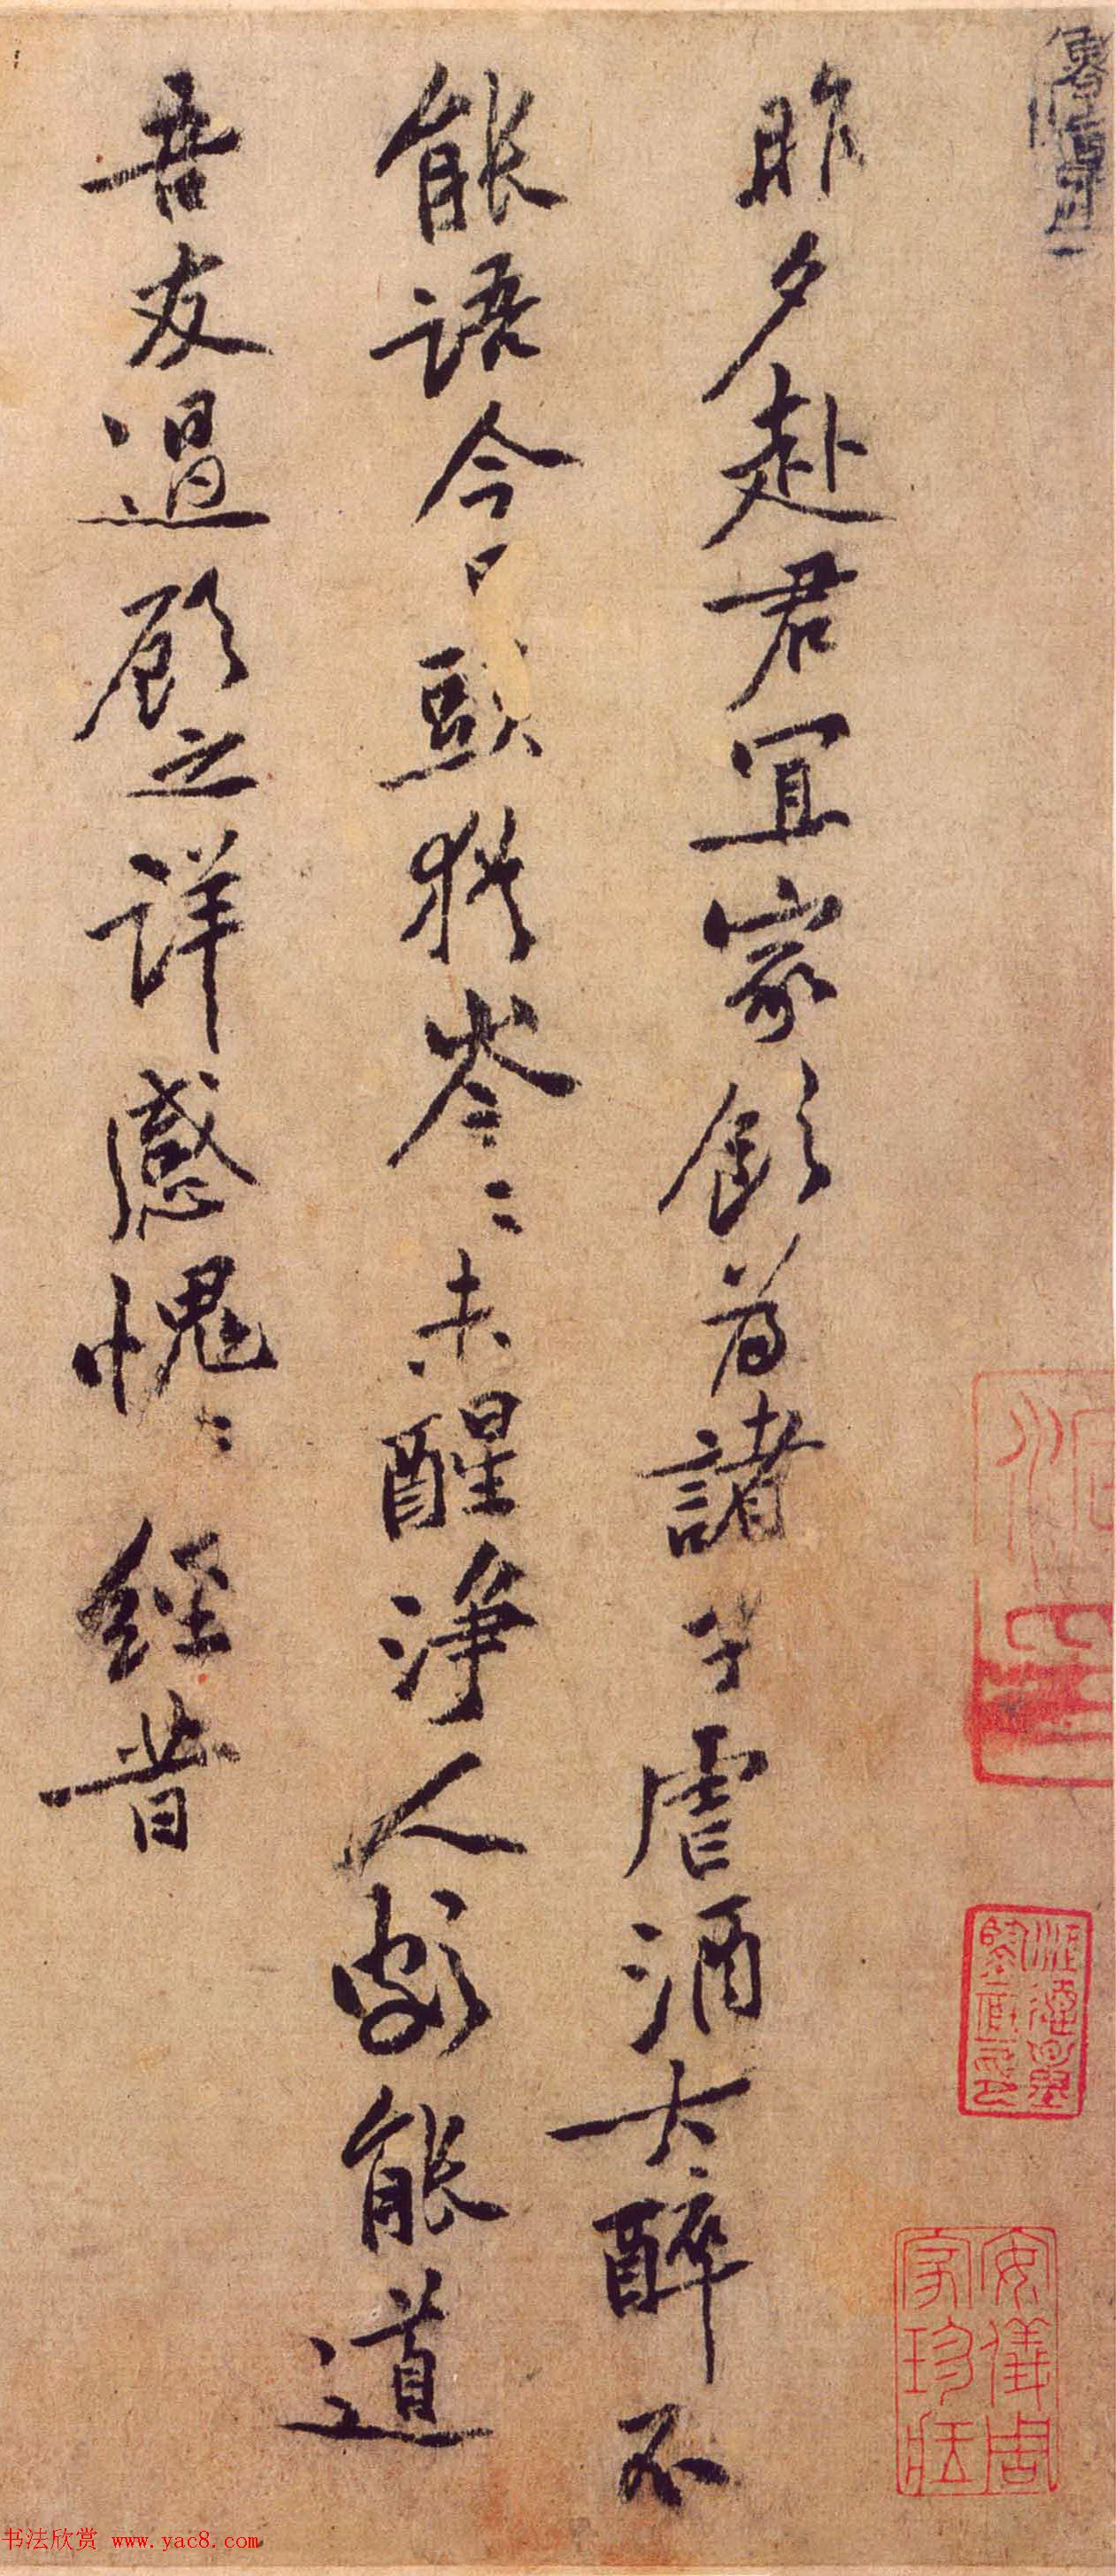 昨夕赴君宜家飲為諸子虐酒大醉不
能語今日頭猶岑〻未醒淨人欲能道
吾友過顧之詳感愧〻經昔
安儀周
家珍藏
书法欣赏 www.yac8.com